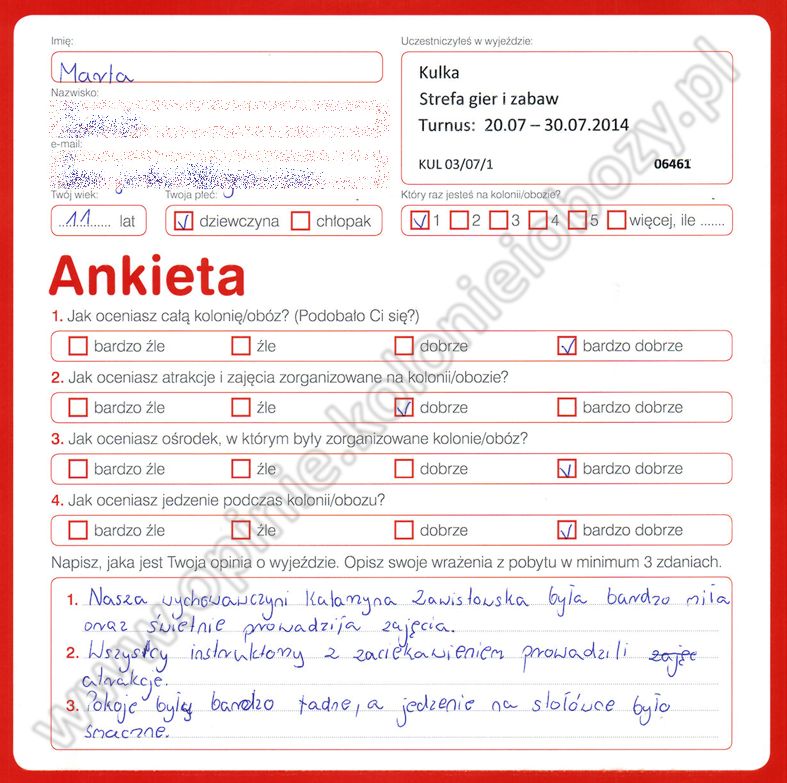 Imię:
Marta
Nazwisko:
e-mail:
Twój wiek:
11 lat
Twoja płeć:
dziewczyna chłopak
Uczestniczyłeś w wyjeździe:
Kulka
Strefa gier i zabaw
Turnus: 20.07 – 30.07.2014
KUL 03/07/1 06461
Który raz jesteś na kolonii/obozie?
1 2 3 4 5 więcej, ile .......
Ankieta
1. Jak oceniasz całą kolonię/obóz? (Podobało Ci się?)
bardzo źle źle dobrze bardzo dobrze
2. Jak oceniasz atrakcje i zajęcia zorganizowane na kolonii/obozie?
bardzo źle źle dobrze bardzo dobrze
3. Jak oceniasz ośrodek, w którym były zorganizowane kolonie/obóz?
bardzo źle źle dobrze bardzo dobrze
4. Jak oceniasz jedzenie podczas kolonii/obozu?
bardzo źle źle dobrze bardzo dobrze
Napisz, jaka jest Twoja opinia o wyjeździe. Opisz swoje wrażenia z pobytu w minimum 3 zdaniach.
1. Nasza wychowawczyni Katarzyna Zawistowska była bardzo miła
oraz świetnie prowadziła zajęcia.
2. Wszyscy instruktorzy z zaciekawieniem prowadzili zajęc
atrakcje.
3. Pokoje były bardzo ładne, a jedzenie na stołówce było
smaczne.
www.opinie.kolonieiobozy.pl